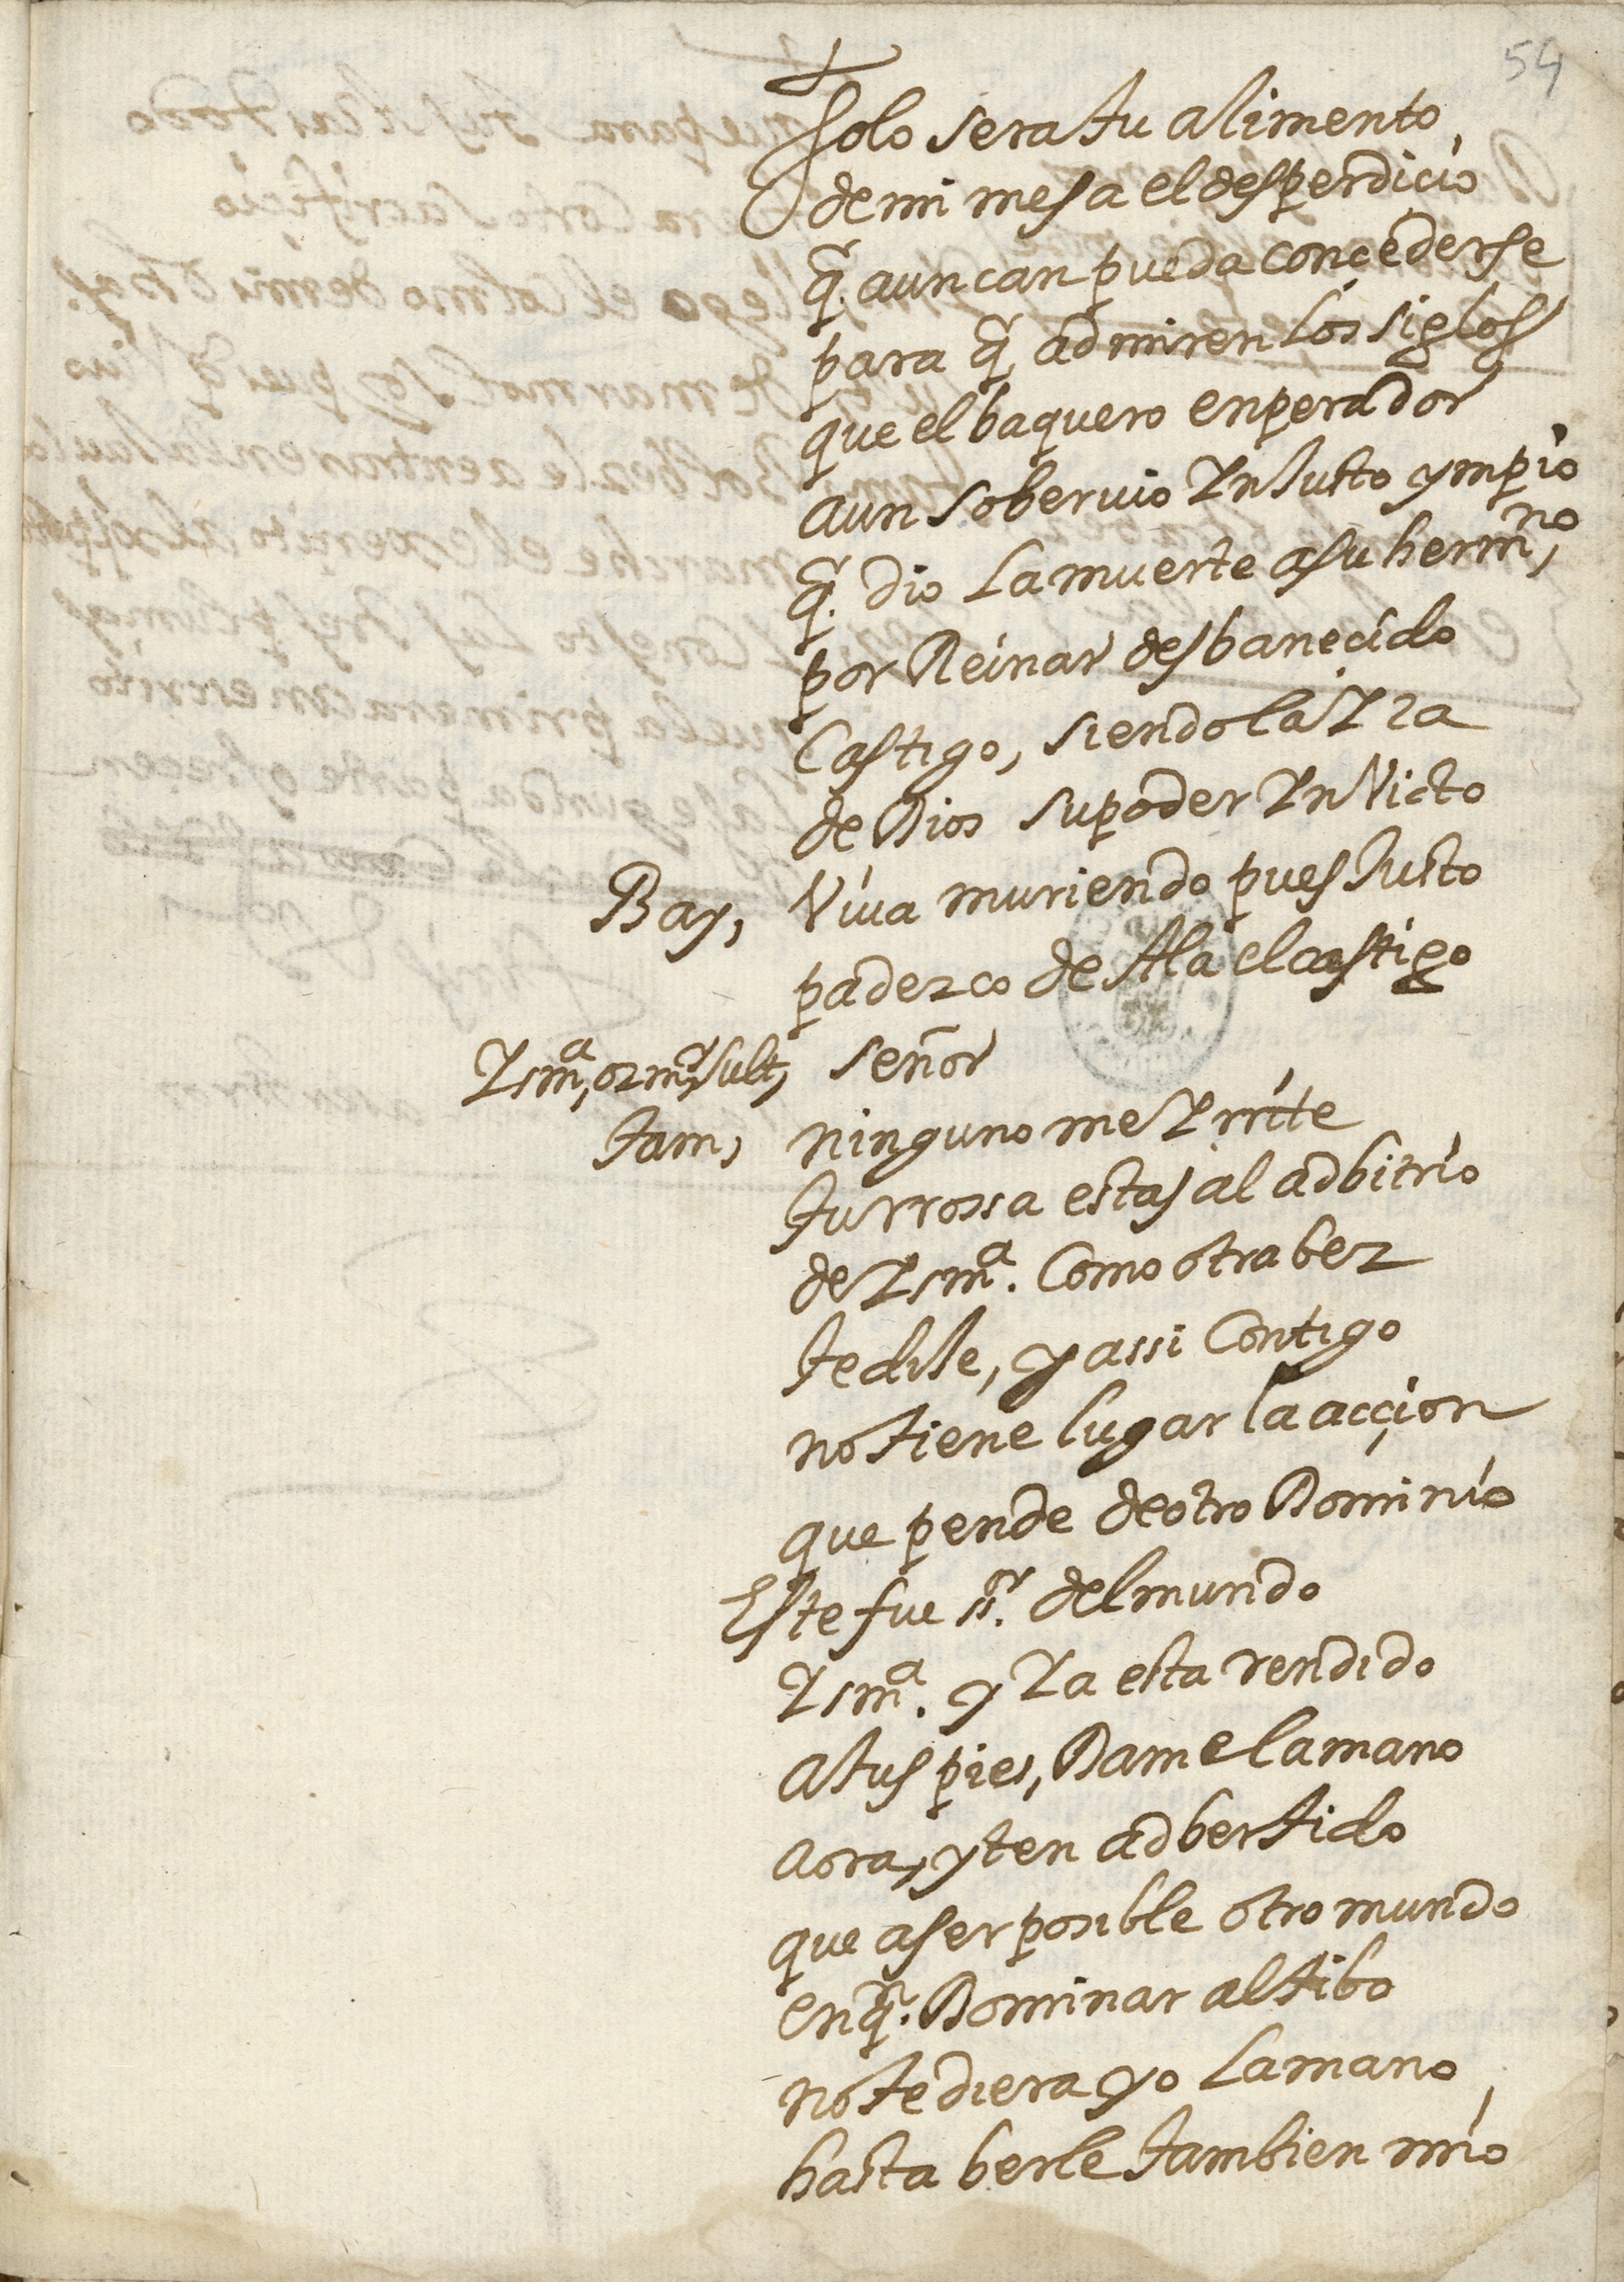 54
solo sera tu alimento
de mi mesa el desperdicio
q̃. aun can pueda concederse
para q̃ admiren los siglos
que el baquero enperador
a un sobervio Injusto ympio
q̃. dio la muerte a su hermno,
por Reinar desbanecido
Castigo, siendo la Ira
de Dios su poder Invicto
Bay, Viva muriendo pues Justo
padezco de Ala el castigo
Ismª, ozmⁿ, sult, señor
tam, ninguno me Irrite
tu rrossa estas al adbitrio
de Ismª. Como otra bez
te dije, y assi Contigo
no tiene lugar la acçion
que pende de otro Dominio
Este fue sr. del mundo
Ismª. y Ia esta rendido
a tus pies, Dame la mano
aora, y ten adbertido
que a ser posible otro mundo
en q̃. Dominar altibo
no te diera yo la mano,
hasta berle tambien mio